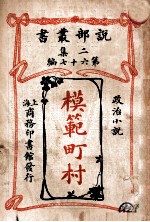 說部叢書
二集
第六十七編
政治小說
模範町村
上海
商務印書館發行